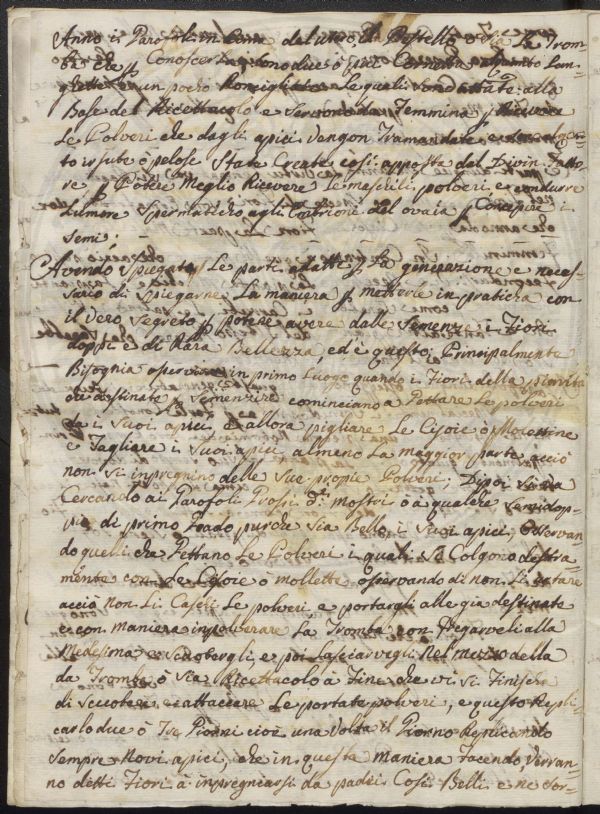 Anno i Garofoli in Cima del uovo, il Pestello o sia la Trom=
ba che p Conoscerla, sono due ò più Cornetti alquanto Lun=
ghetti e un poco Ronciglitti Le quali sono attate alla
Base del Ricettacolo e Servono da Femmina p Ricevere
Le Polveri che dagli apici vengon Tramandate, e
to irsute ò pelose state Create così apposta del Divin Fatto=
re p Potere Meglio Ricevere Le maschili polveri e condurre
Lumore Spermatico agli Embrioni del ovaia p Concepire i
Semi;
Avendo Spiegato Le parti adatte p La generazione e neces=
sario di Spiegarne La maniera p metterle in pratica con
il Vero Segreto p potere avere dalle Semenze i Fiori
doppi e di Rara Bellezza, ed è questo; Principalmente
Bisognia osservare in primo Luogo quando i Fiori della pianta
destinata p Semenzire cominciano a Gettare Le polveri
da i Suoi apici e allora pigliare Le Cisoie o Mollettine
e Tagliare i Suoi apici, almeno La maggior parte, acciò
non Si inpregnino delle Sue propie Polveri; Dipoi Si va
Cercando ai Garofoli Grossi d.i mostri ò a qualche Semidop=
pio di primo Grado purche Sia Bello, i Suoi apici, Osservan=
do quelli che Gettano Le Polveri i quali Si Colgono destra=
mente con Le Cisoie ò mollette, osservando di non Li urtare
acciò non Li Caschi Le polveri e portargli alle gia destinate
e con maniera inpolverare La Tromba con Fregarveli alla
Medesima e Scuotergli, e poi Lasciarvegli Nel mezzo della
da Tromba ò sia Ricettacolo à Fine che vi Si Finischi
di Scuotere e attaccare Le portate polveri, e questo Repli=
carlo due ò Tre Giorni cioè una Volta il Giorno Replicando
Sempre Novi apici, che in questa maniera Facendo, Verran=
no detti Fiori à inpregniarsi da padri Così Belli e ne Sor=